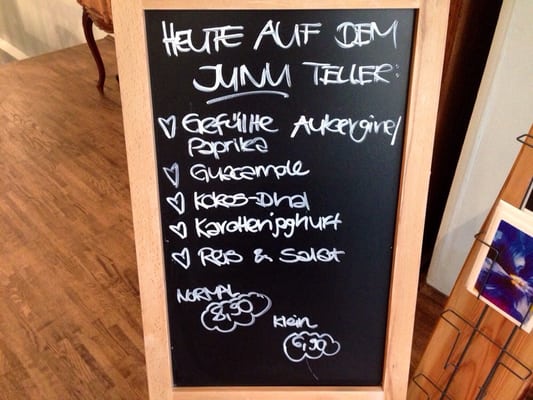 HEUTE AUF DEM
JUNU TELLER:
Gefüllte Aubergine/
Paprika
Guacamole
Kokos-Dhal
Karottenjoghurt
Reis & Salat
NORMAL
8,90
Klein
6,90